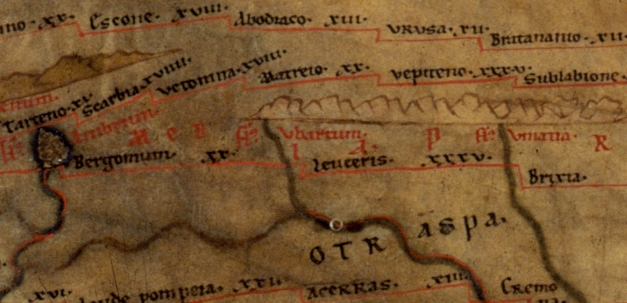 no · xx · Escone · xviii · Abodiaco · xiii · URUSA · xii · Bratananio · xii
Tarteno · xi · Scarbia · xviiii · Vetonina · xviii · Matreio · xx · Vepiteno · xxxv · Sublabione ·
ff: Umbrum M E D ff: Ubartum I A P ff: Umatia R
Bergomum · xx · Leuceris · xxxv · Brixia ·
OTR ASPA ·
xvi · laude pompeia · xxii · ACERRAS · xiii · Cremo